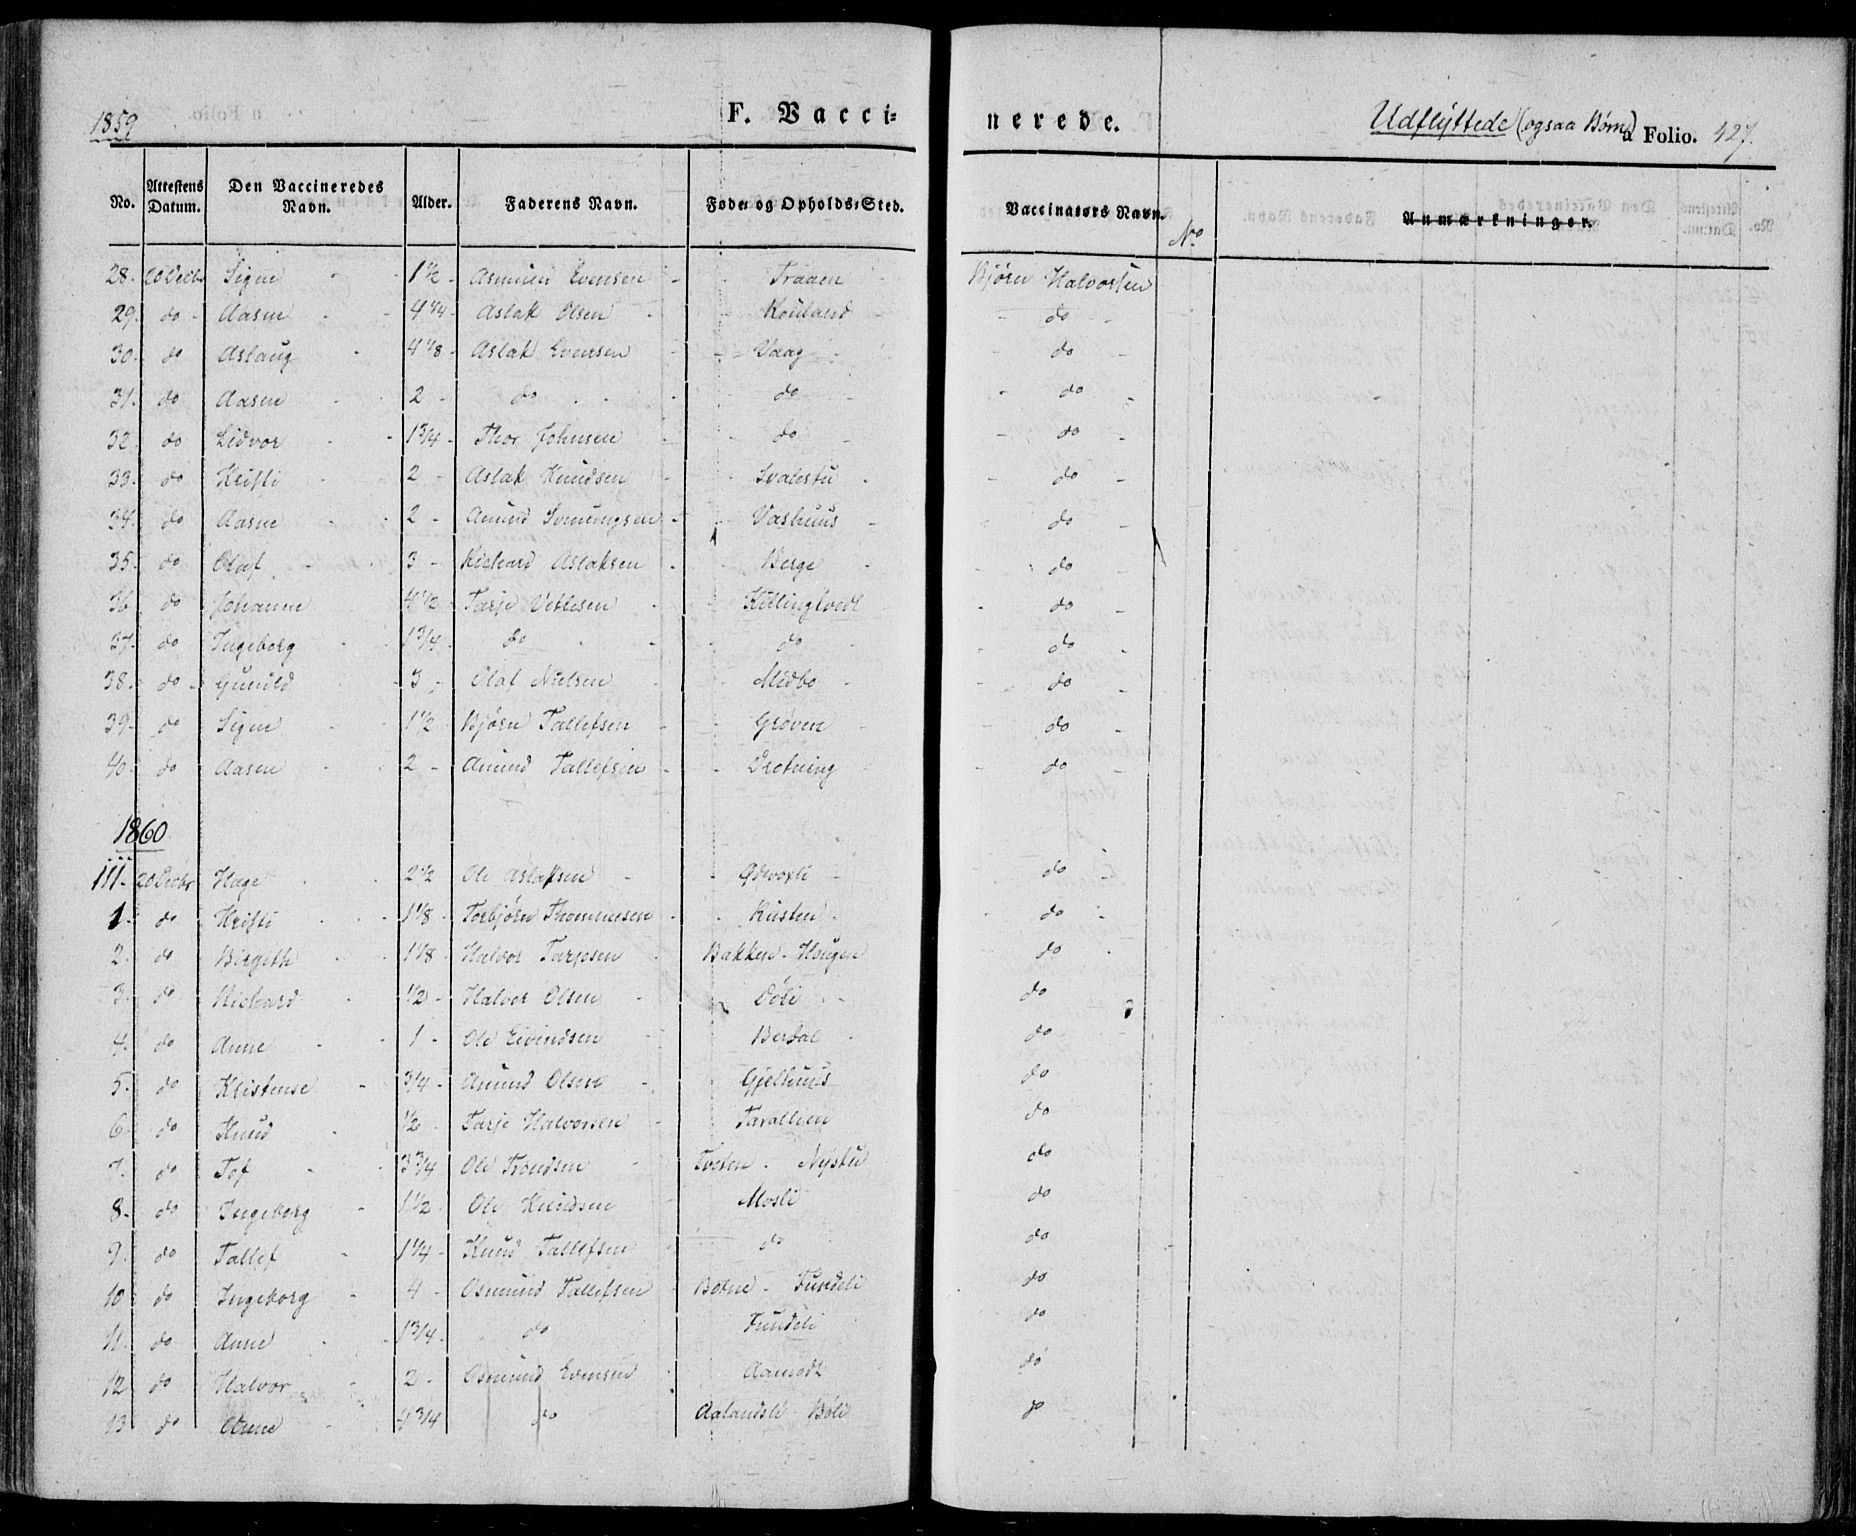 1859 F. Vacci= nerede. Udflyttede (ogsaa Børn) a Folio. 427.
No. Attestens Datum. Den Vaccineredes Navn. Alder. Faderens Navn. Føde= og Opholds=Sted. Vaccinators Navn. No Anmærkninger.
28. 20 Decbr Signe 1 1/2 Asmund Evensen Traaen Bjørn Halvorsen
29. do Aasne 4 1/4 Aslak Olsen Rouland do
30. do Aslaug 4 1/8 Aslak Evensen Vaag do
31. do Aasne 2 do do do
32. do Lidvor 1 3/4 Thor Johnsen do do
33. do Kristi 2 Aslak Knudsen Svalestu do
34. do Aasne 2 Amund Sveinungsen Vashuus do
35. do Oluf 3 Richard Aslaksen Berge do
36 do Johanne 4 1/2 Tarje Vetlesen Killingtvedt do
37. do Ingeborg 1 3/4 do do do
38. do Gunild 3 Olaf Nielsen Midbø do
39. do Signe 1 1/2 Bjørn Tallefsen Grøven do
40. do Aasne 2 Amund Tallefsen Drotning do
1860
111. 20 Decbr Hæge 2 1/2 Ole Aslaksen do
1. do Kristi 1 1/8 Torbjørn Thommesen Rusten do
2. do Birgith 1 1/8 Halvor Tarjesen Bakken - Haugen do
3. do Richard 1/2 Halvor Olsen Døli do
4. do Anne 1 Ole Eivindsen Berdal do
5. do Kristense 3/4 Amund Olsen Gjelhuus do
6. do Knud 1/2 Tarje Halvorsen Tarallien do
7. do Tof 3 3/4 Ole Trondsen Tveten - Nystu do
8. do Ingeborg 1 1/2 Ole Knudsen Mosli do
9. do Tallef 1 1/4 Knud Tallefsen do do
10 do Ingeborg 4 Osmund Tallefsen Botne - Fundeli do
11. do Anne 1 3/4 do Fundeli do
12 do Halvor 2 Osmund Evensen Aamodt do
13 do Anne 4 3/4 do Aalandsli Bøli do